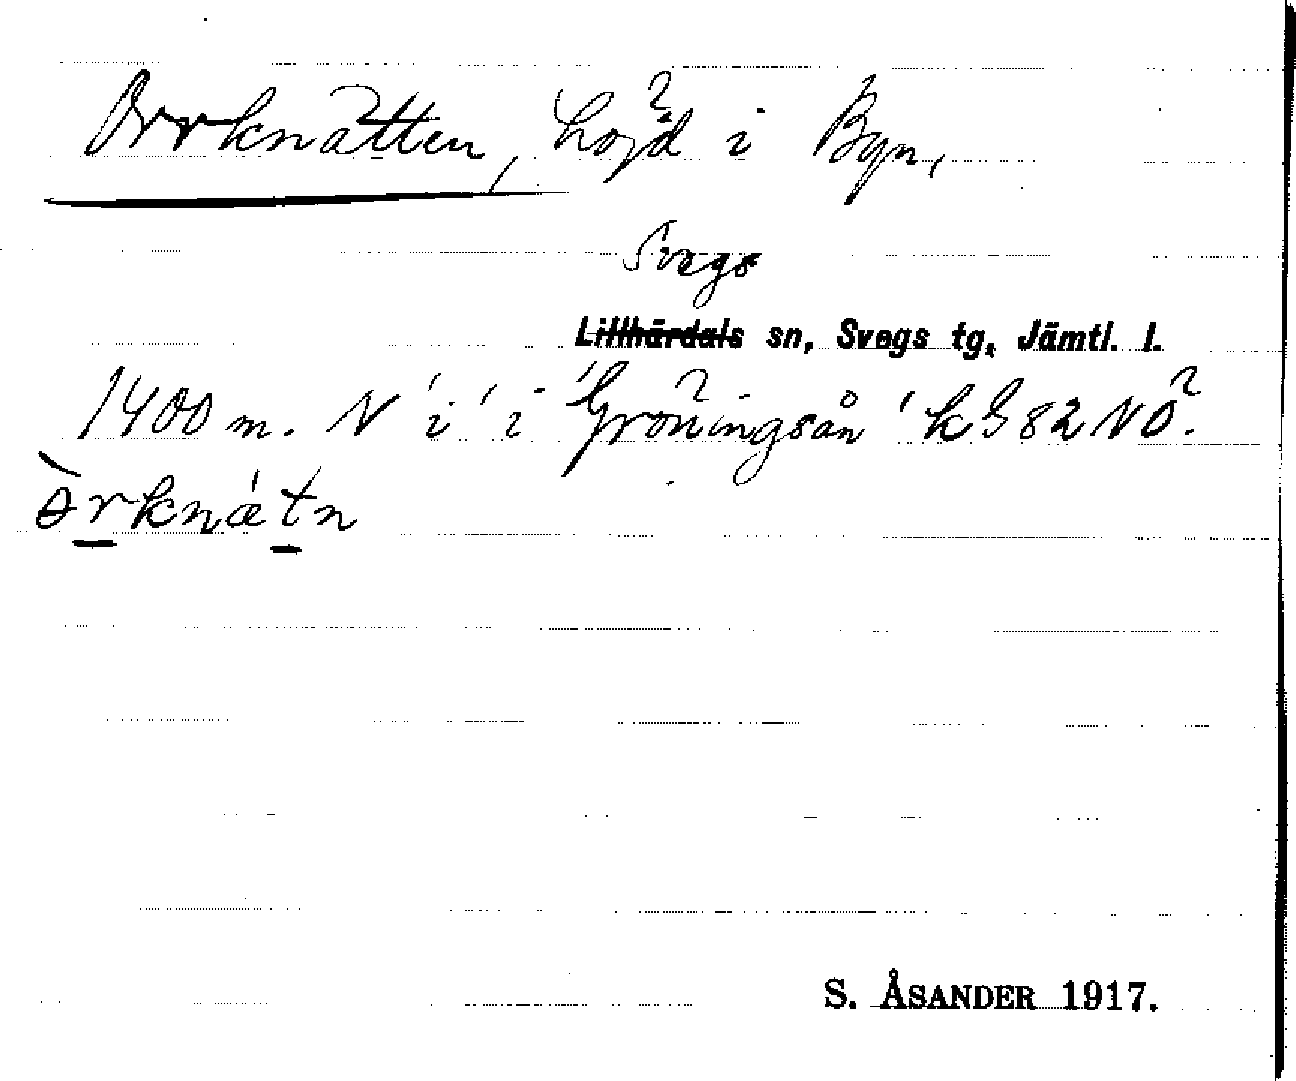 Orrknätten, höjd i Byn,
Svegs
Lillhärdals sn, Svegs tg, Jämtl. l.
1400 m. N 'i' i 'Gröningsån' kG82NÖ.
ò̀rknǽtn
S. ÅSANDER 1917.